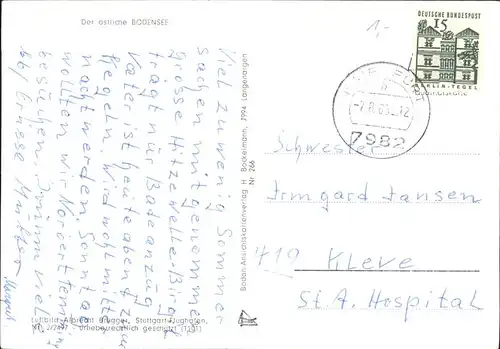 Der östliche BODENSEE
1,-
DEUTSCHE BUNDESPOST
15
BERLIN-TEGEL
7982
Viel zu wenig Sommer
sachen mitgenommen
Grosse Hitzewelle. Birgit
trägt nur Badeanzug.
Vater ist heute abend zum
Kegeln. Wird wohl mitter
nacht werden. Sonntag
wollten wir Norbert
besuchen.
Grüsse Mutter
Schwester
Irmgard Jansen
419 Kleve
St. A. Hospital
Bodan-Ansichtskartenverlag H. Bockelmann, 7994 Langenargen
Nr. 266
Luftbild Albrecht Brugger, Stuttgart-Flughafen,
Nr. 2/24 urheberrechtlich geschützt (1101)